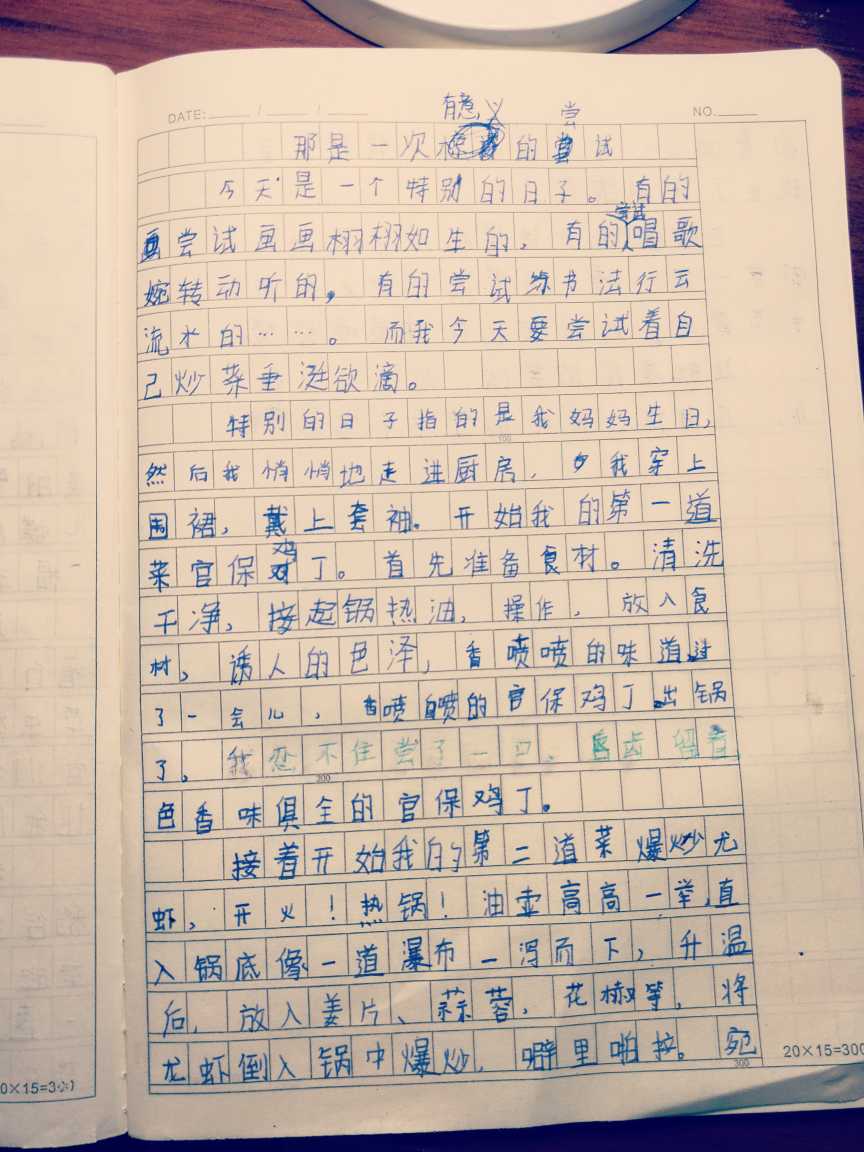 DATE: / / NO.
有意义 尝
那是一次的尝试
今天是一个特别的日子。有的
尝试画画栩栩如生的,有的尝试唱歌
婉转动听的,有的尝试练书法行云
流水的……。而我今天要尝试着自
己炒菜垂涎欲滴。
特别的日子指的是我妈妈生日,
然后我悄悄地走进厨房,我穿上
围裙,戴上套袖。开始我的第一道
菜宫保鸡丁。首先准备食材。清洗
干净,接起锅热油,操作,放入食
材,诱人的色泽,香喷喷的味道,过
了一会儿,香喷喷的宫保鸡丁出锅
了。我忍不住尝了一口,唇齿留香,
色香味俱全的宫保鸡丁。
接着开始我的第二道菜爆炒龙
虾,开火!热锅!油壶高高一举,直
入锅底像一道瀑布一泻而下,升温
后,放入姜片、蒜蓉,花椒等,将
龙虾倒入锅中爆炒,噼里啪拉。宛
100
200
300
20×15=300